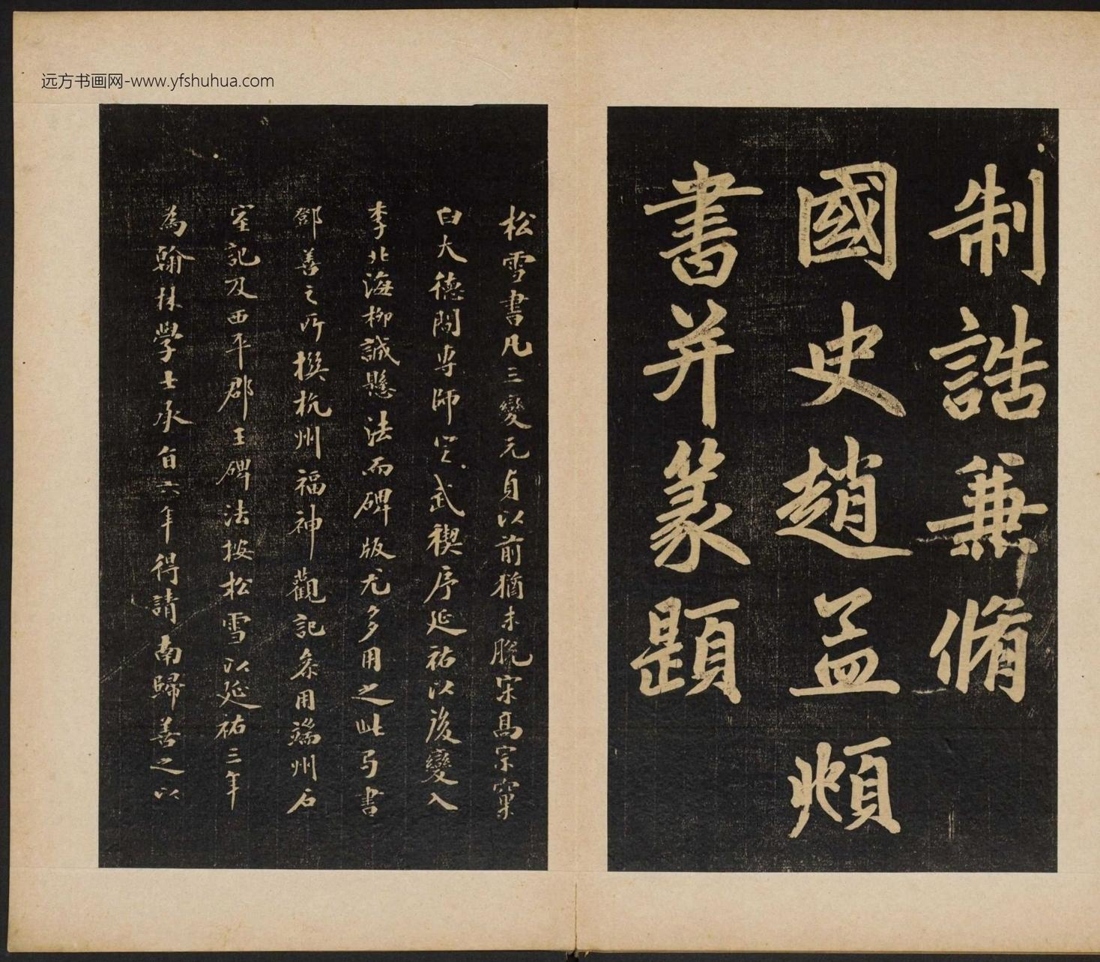 远方书画网-www.yfshuhua.com
制誥兼脩
國史趙孟頫
書并篆題
松雪書凡三變元貞以前猶未脫宋高宗窠
臼大德間專師定武禊序延祐以後變入
李北海柳誠懸法而碑版尤多用之此乃書
鄧善之所撰杭州福神觀記參用端州石
室記及西平郡王碑法按松雪以延祐三年
為翰林學士承旨六年得請南歸善之以